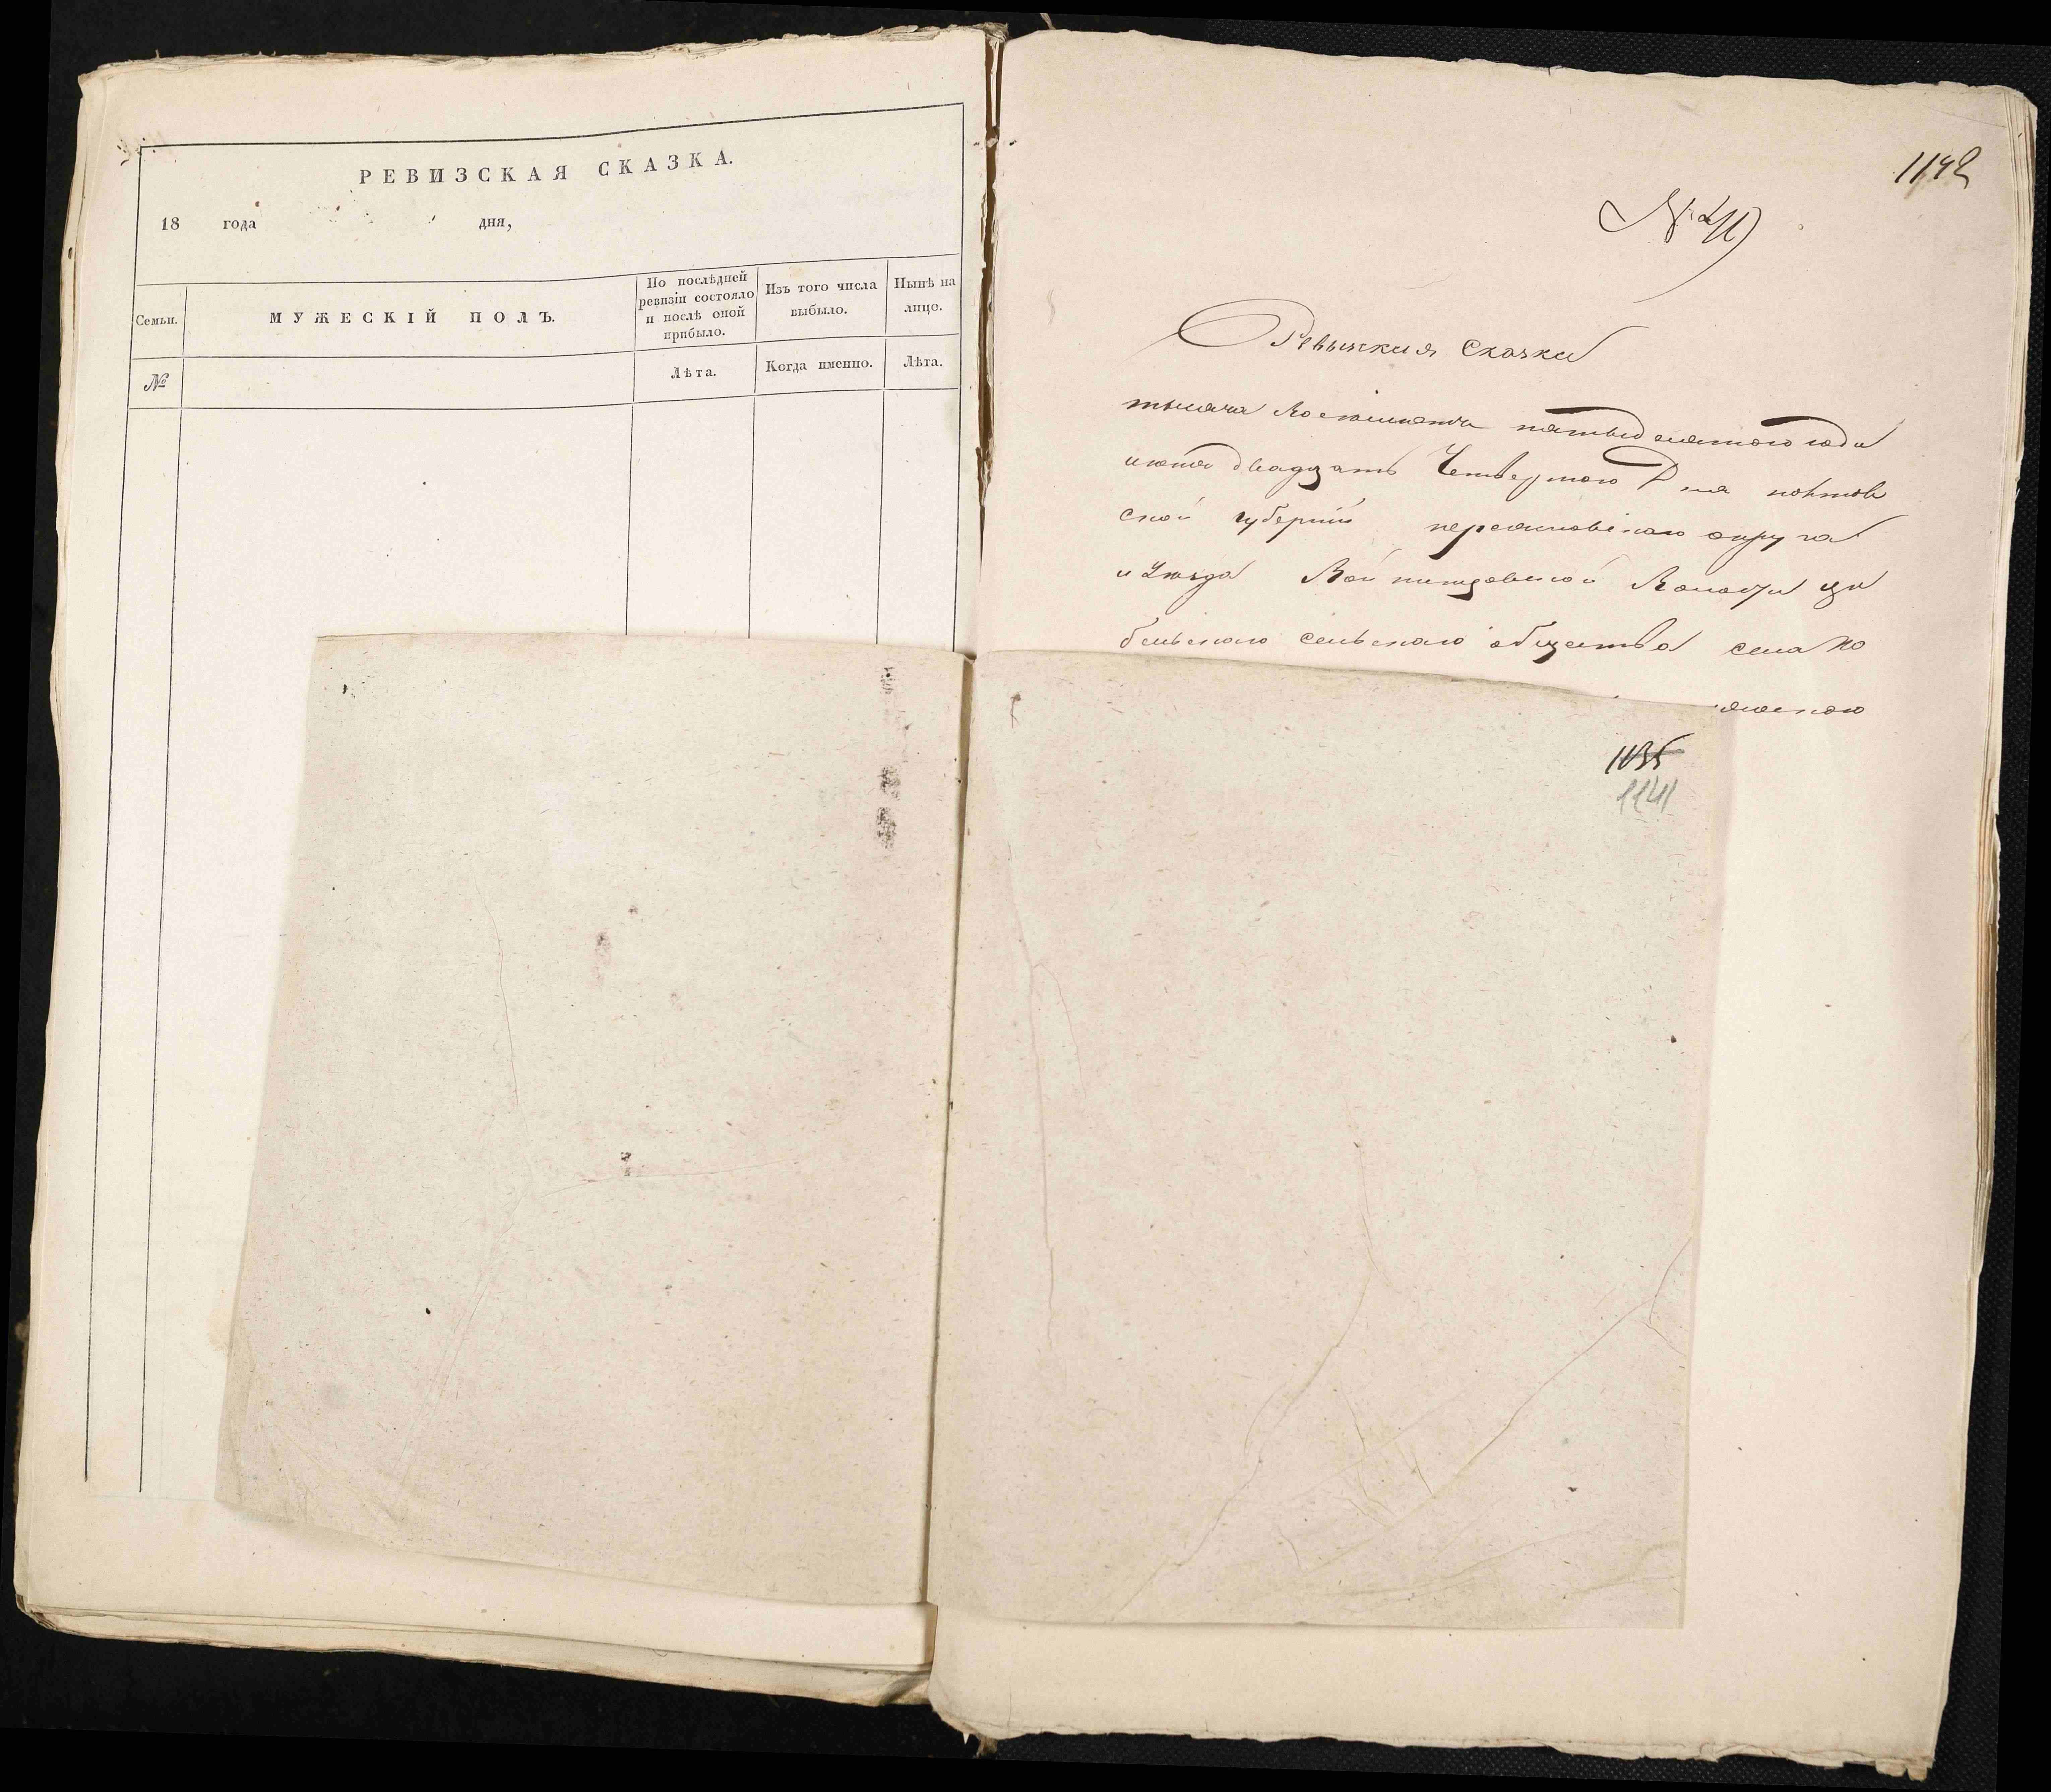 РЕВИЗСКАЯ СКАЗКА.
18 года дня,
Семьи.
МУЖЕСКІЙ ПОЛЪ.
По послѣдней ревизіи состояло и послѣ оной прибыло.
Изъ того числа выбыло.
Нынѣ на лицо.
№
Лѣта.
Когда именно.
Лѣта.
1142
Ревызкия Сказки
тысяча восемсотъ пятьдесятого года
июня двадцать Четвертого Дня полтав
ской губернии переясловского округа
и уезда Войтинцовской Волости
бельского сельского общества села
1135
1141